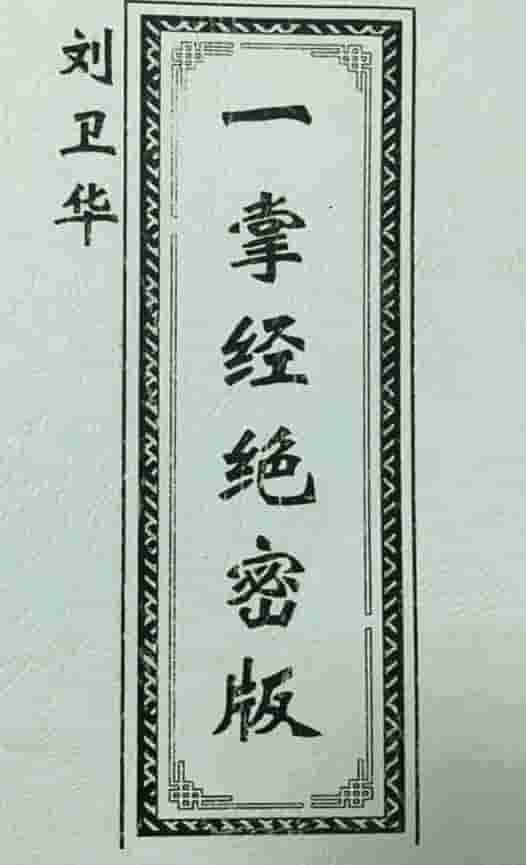 一掌经绝密版
刘卫华